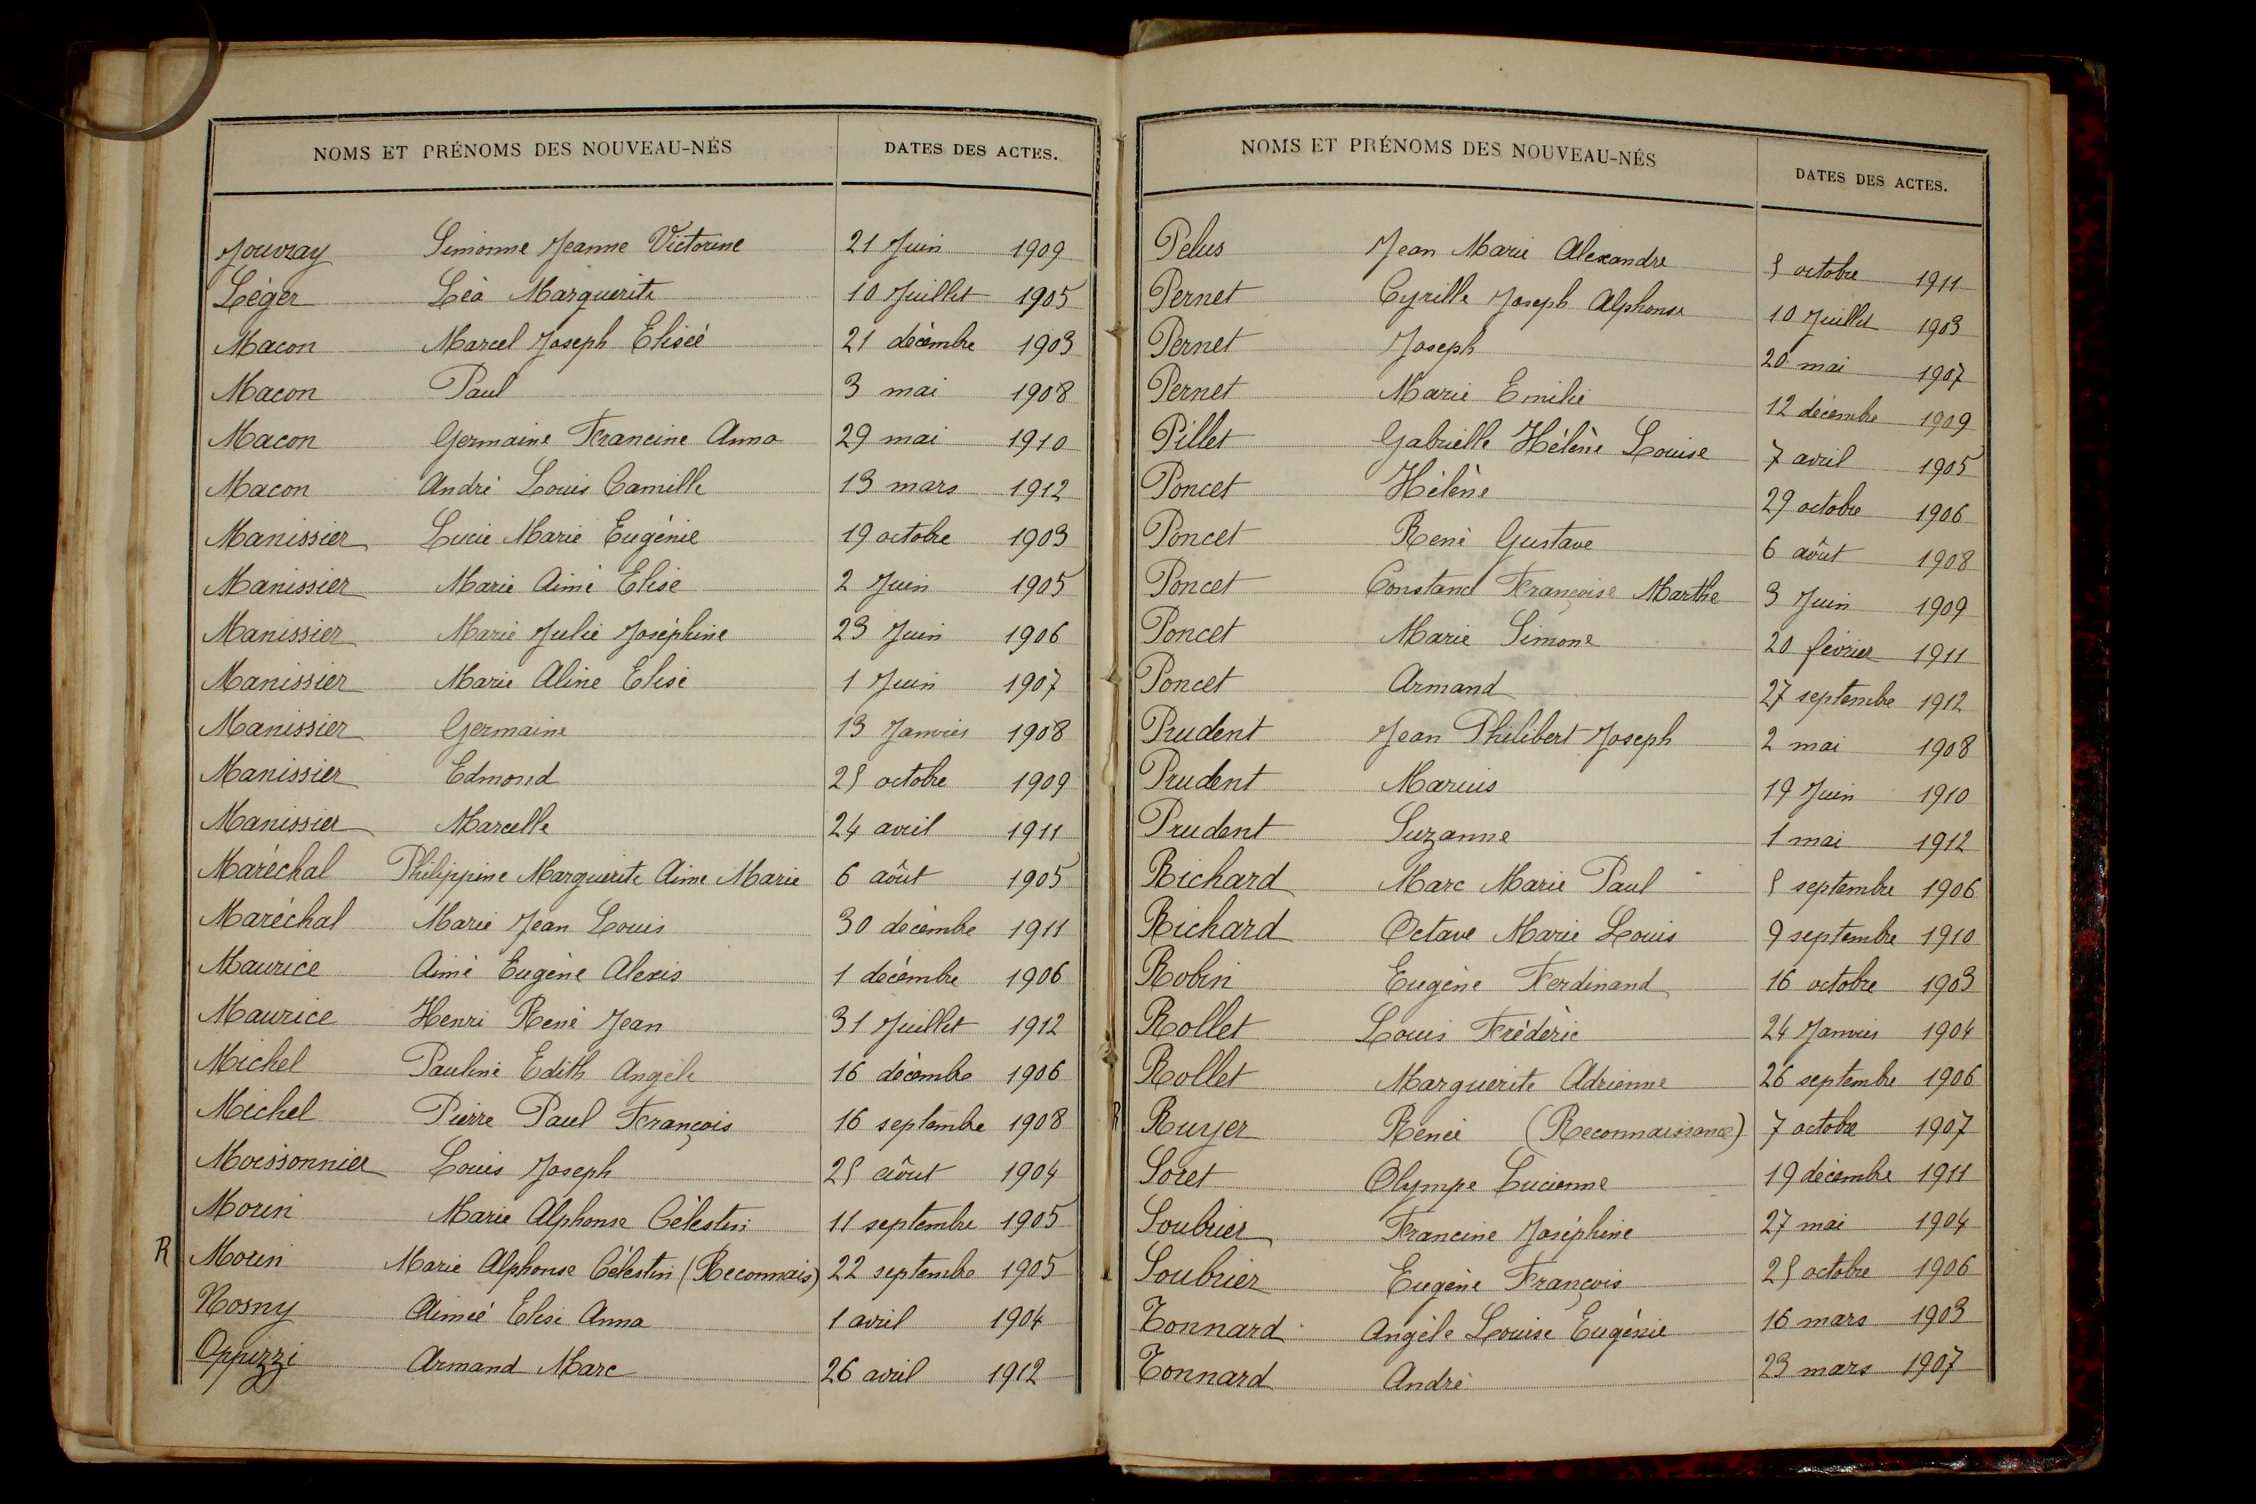 NOMS ET PRÉNOMS DES NOUVEAU-NÉS DATES DES ACTES.
Jouvray Simonne Jeanne Victorine 21 Juin 1909
Léger Léa Marguerite 10 Juillet 1905
Macon Marcel Joseph Elisée 21 décembre 1903
Macon Paul 3 mai 1908
Macon Germaine Francine Anna 29 mai 1910
Macon André Louis Camille 13 mars 1912
Manissier Lucie Marie Eugénie 19 octobre 1903
Manissier Marie Aimé Elise 2 Juin 1905
Manissier Marie Julie Joséphine 23 Juin 1906
Manissier Marie Aline Elise 1 Juin 1907
Manissier Germaine 13 Janvier 1908
Manissier Edmond 25 octobre 1909
Manissier Marcelle 24 avril 1911
Maréchal Philippine Marguerite Aime Marie 6 aôut 1905
Maréchal Marie Jean Louis 30 décembre 1911
Maurice Aimé Eugène Alexis 1 décembre 1906
Maurice Henri René Jean 31 Juillet 1912
Michel Pauline Edith Angèle 16 décembre 1906
Michel Pierre Paul François 16 septembre 1908
Moissonnier Louis Joseph 25 aôut 1904
Morin Marie Alphonse Célestin 11 septembre 1905
R Morin Marie Alphonse Célestin (Reconnais) 22 septembre 1905
Nosny Aimée Elise Anna 1 avril 1904
Oppizzi Armand Marc 26 avril 1912
NOMS ET PRÉNOMS DES NOUVEAU-NÉS DATES DES ACTES.
Pelus Jean Marie Alexandre 5 octobre 1911
Pernet Cyrille Joseph Alphonse 10 Juillet 1903
Pernet Joseph 20 mai 1907
Pernet Marie Emilie 12 décembre 1909
Pillet Gabrielle Hélène Louise 7 avril 1905
Poncet Hélène 29 octobre 1906
Poncet René Gustave 6 aôut 1908
Poncet Constand Françoise Marthe 3 Juin 1909
Poncet Marie Simone 20 février 1911
Poncet Armand 27 septembre 1912
Prudent Jean Philibert Joseph 2 mai 1908
Prudent Marius 19 Juin 1910
Prudent Suzanne 1 mai 1912
Richard Marc Marie Paul 5 septembre 1906
Richard Octave Marie Louis 9 septembre 1910
Robin Eugène Ferdinand 16 octobre 1903
Rollet Louis Fréderic 24 Janvier 1904
Rollet Marguerite Adrienne 26 septembre 1906
R Ruyer Renée (Reconnaissance) 7 octobre 1907
Soret Olympe Lucienne 19 décembre 1911
Soubrier Francine Joséphine 27 mai 1904
Soubrier Eugène François 25 octobre 1906
Tonnard Angèle Louise Eugénie 16 mars 1903
Tonnard André 23 mars 1907